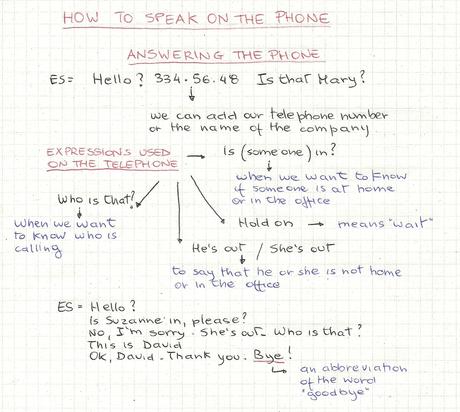 HOW TO SPEAK ON THE PHONE
ANSWERING THE PHONE
ES= Hello? 334.56.48 Is that Mary?
we can add our telephone number
or the name of the company.
EXPRESSIONS USED
ON THE TELEPHONE
Is (someone) in?
when we want to know
if someone is at home
or in the office
Who is that?
When we want
to know who is
calling
Hold on → means "wait"
He's out / She's out
to say that he or she is not home
or in the office
ES= Hello?
Is Suzanne in, please?
No, I'm sorry. She's out. Who is that?
This is David
Ok, David. Thank you. Bye!
an abbreviation
of the word
"goodbye"